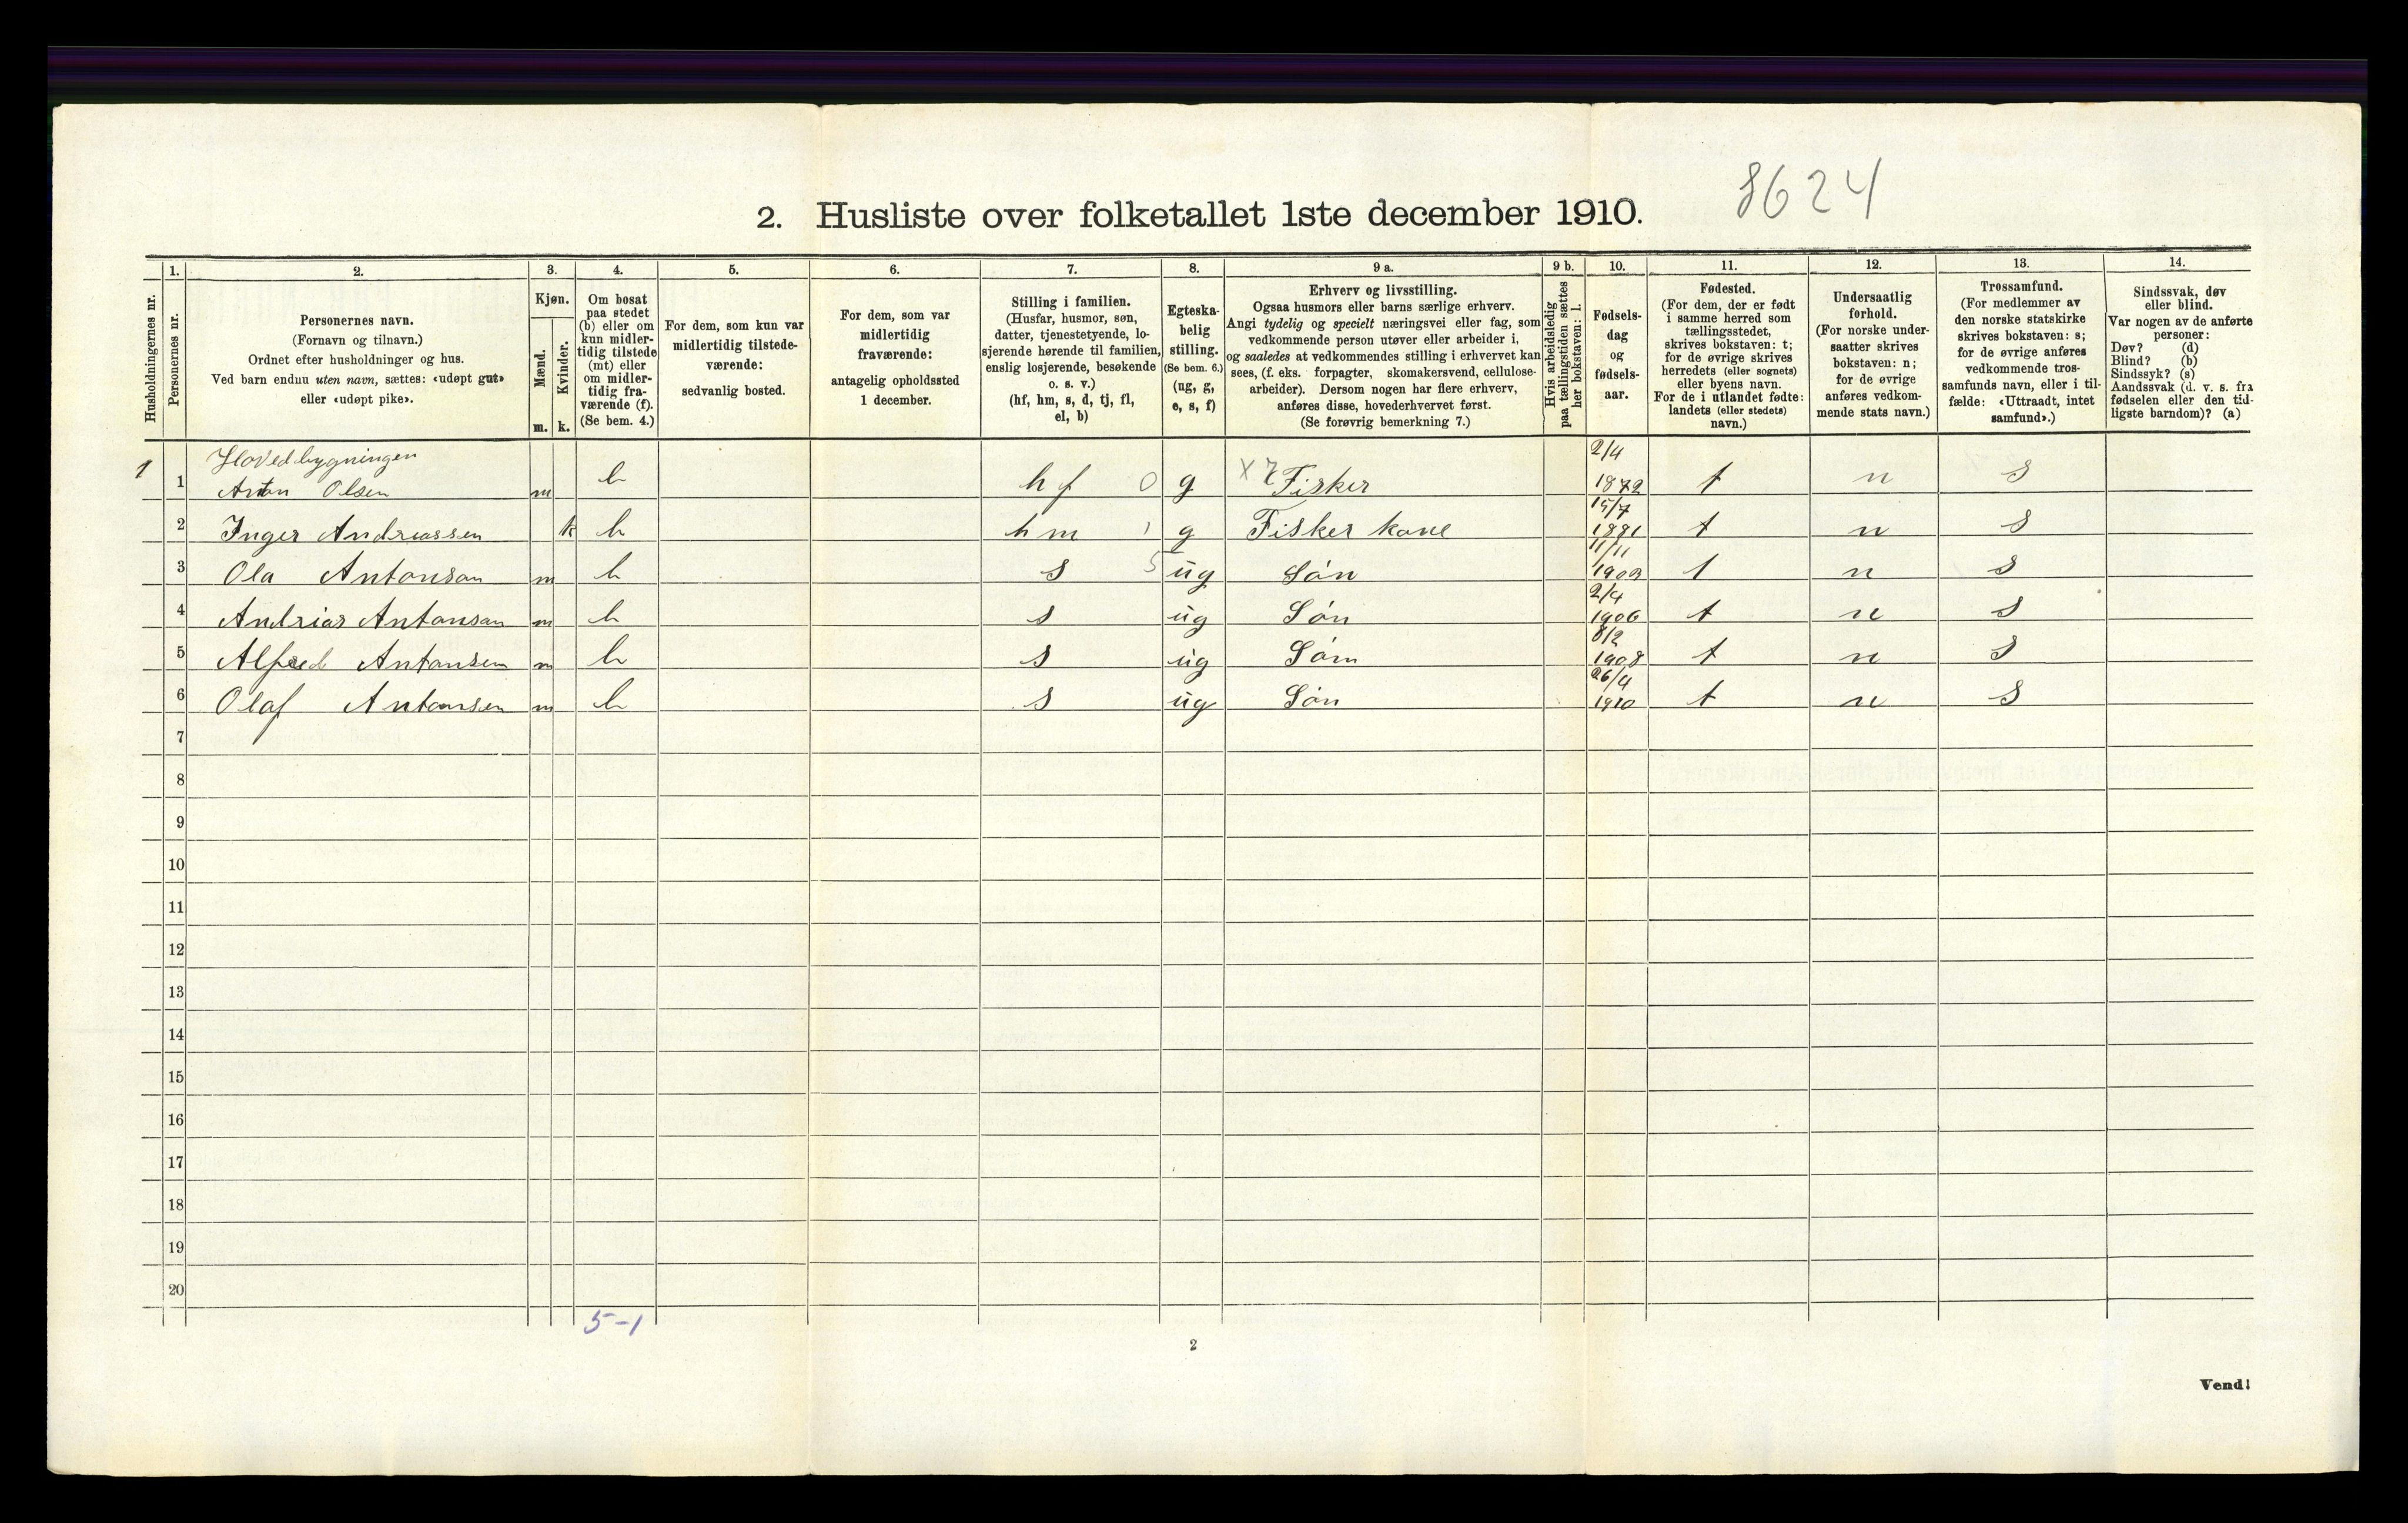 8624
2. Husliste over folketallet 1ste december 1910.
Husholdningernes nr.
1. Personernes nr.
2. Personernes navn.
(Fornavn og tilnavn.)
Ordnet efter husholdninger og hus.
Ved barn endnu uten navn, sættes: «udøpt gut»
eller «udøpt pike».
3. Kjøn.
Mænd. m.
Kvinder. k.
4. Om bosat
paa stedet
(b) eller om
kun midler-
tidig tilstede
(mt) eller
om midler-
tidig fra-
værende (f).
(Se bem. 4.)
5. For dem, som kun var
midlertidig tilstede-
værende:
sedvanlig bosted.
6. For dem, som var
midlertidig
fraværende:
antagelig opholdssted
1 december.
7. Stilling i familien.
(Husfar, husmor, søn,
datter, tjenestetyende, lo-
sjerende hørende til familien,
enslig losjerende, besøkende
o. s. v.)
(hf, hm, s, d, tj, fl,
el, b)
8. Egteska-
belig
stilling.
(Se bem. 6.)
(ug, g,
e, s, f)
9 a. Erhverv og livsstilling.
Ogsaa husmors eller barns særlige erhverv.
Angi tydelig og specielt næringsvei eller fag, som
vedkommende person utøver eller arbeider i,
og saaledes at vedkommendes stilling i erhvervet kan
sees, (f. eks. forpagter, skomakersvend, cellulose-
arbeider). Dersom nogen har flere erhverv,
anføres disse, hovederhvervet først.
(Se forøvrig bemerkning 7.)
9 b. Hvis arbeidsledig
paa tællingstiden sættes
her bokstaven: l.
10. Fødsels-
dag
og
fødsels-
aar.
11. Fødested.
(For dem, der er født
i samme herred som
tællingsstedet,
skrives bokstaven: t;
for de øvrige skrives
herredets (eller sognets)
eller byens navn.
For de i utlandet fødte:
landets (eller stedets)
navn.)
12. Undersaatlig
forhold.
(For norske under-
saatter skrives
bokstaven: n;
for de øvrige
anføres vedkom-
mende stats navn.)
13. Trossamfund.
(For medlemmer av
den norske statskirke
skrives bokstaven: s;
for de øvrige anføres
vedkommende tros-
samfunds navn, eller i til-
fælde: «Uttraadt, intet
samfund».)
14. Sindssvak, døv
eller blind.
Var nogen av de anførte
personer:
Døv? (d)
Blind? (b)
Sindssyk? (s)
Aandssvak (d. v. s. fra
fødselen eller den tid-
ligste barndom)? (a)
Hovedbygningen
1 1 Anton Olsen m b hf 0 g X7 Fisker 2/4 1872 t n s
2 Inger Andreassen k b hm 1 g Fisker kone 15/7 1881 t n s
3 Ola Antonsen m b s 5 ug Søn 11/11 1902 t n s
4 Andrias Antonsen m b s ug Søn 2/4 1906 t n s
5 Alfred Antonsen m b s ug Søn 8/2 1908 t n s
6 Olaf Antonsen m b s ug Søn 26/4 1910 t n s
7
8
9
10
11
12
13
14
15
16
17
18
19
20
5-1
2
Vend!